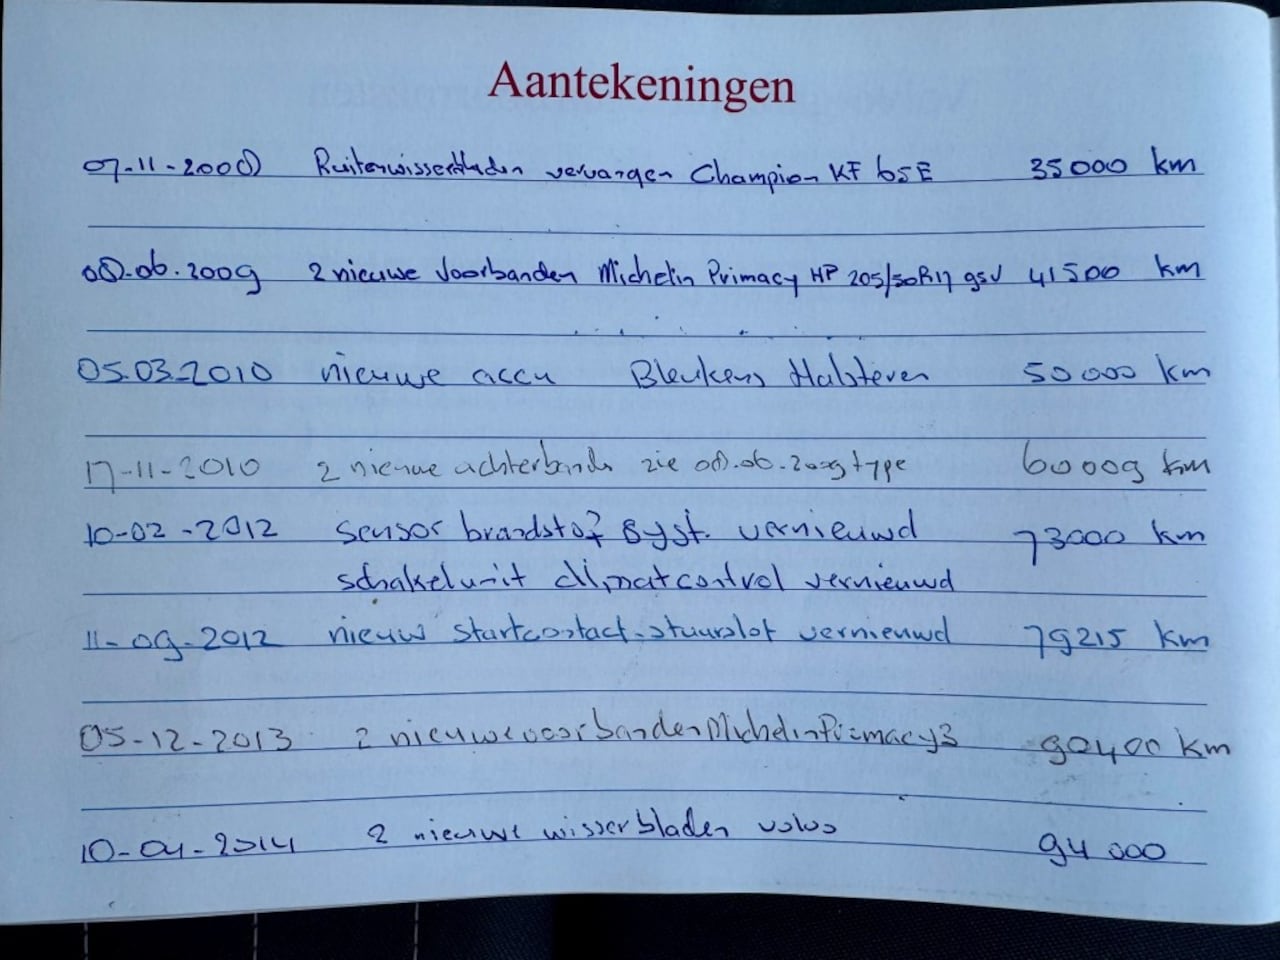 Aantekeningen
07-11-2008 Ruitenwisserbladen vervangen Champion KF 65E 35000 km
08.06.2009 2 nieuwe Voorbanden Michelin Primacy HP 205/50R17 95V 41500 km
05.03.2010 nieuwe accu Bleukens Halsteren 50000 km
17-11-2010 2 nieuwe achterbanden zie 08.06.2009 type 60009 km
10-02-2012 sensor brandstof syst. vernieuwd 73000 km
schakelunit climatcontrol vernieuwd
11-09-2012 nieuw startcontact-stuurslot vernieuwd 79215 km
05-12-2013 2 nieuwe voorbanden Michelin Primacy3 90400 km
10-04-2014 2 nieuwe wisserbladen volvo 94000